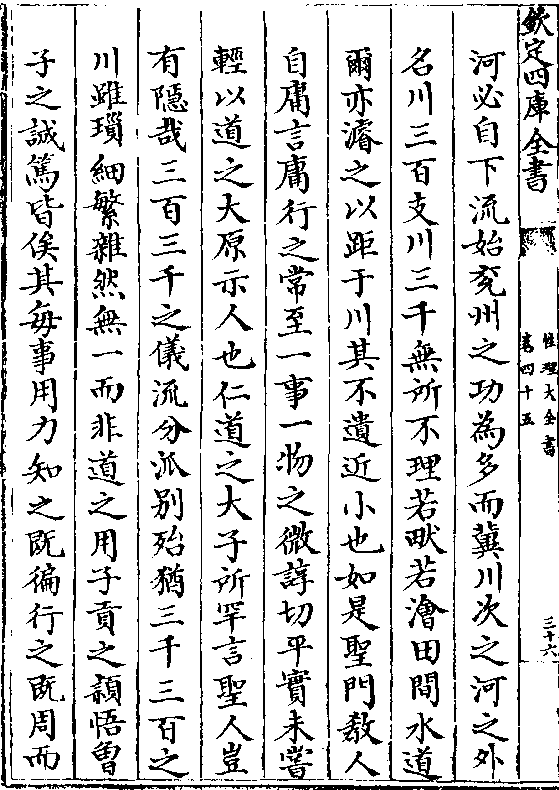 欽定四庫全書
性理大全書
卷四十五
三十六
河必自下流始兖州之功為多而冀川次之河之外
名川三百支川三千無所不理若畎若澮田間水道
爾亦濬之以距于川其不遺近小也如是聖門敎人
自庸言庸行之常至一事一物之微諄切平實未嘗
輕以道之大原示人也仁道之大子所罕言聖人豈
有隱哉三百三千之儀流分派别殆猶三千三百之
川雖瑣細繁雜然無一而非道之用子貢之頴悟曽
子之誠篤皆俟其毎事用力知之既徧行之既周而